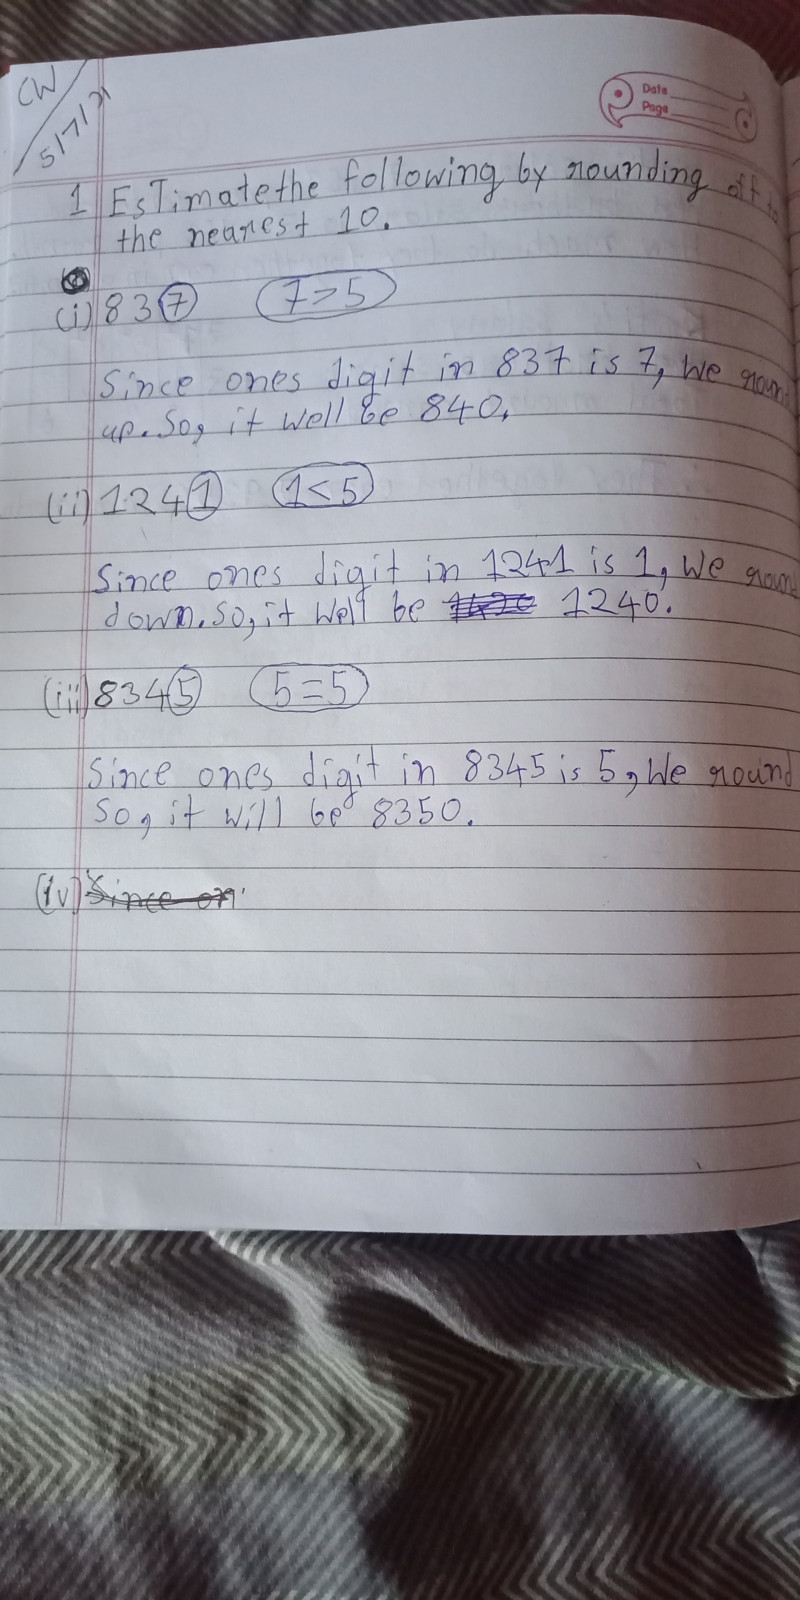 CW
5/7/21
Date
Page
1 EsTimate the following by rounding off to
the nearest 10.
(i) 837 7>5
Since ones digit in 837 is 7, We roun
up. So, it well be 840.
(ii) 1241 1<5
Since ones digit in 1241 is 1, We roun
down. So, it well be 1240.
(iii) 8345 5=5
Since ones digit in 8345 is 5, We round
So, it will be 8350.
(iv) Since on